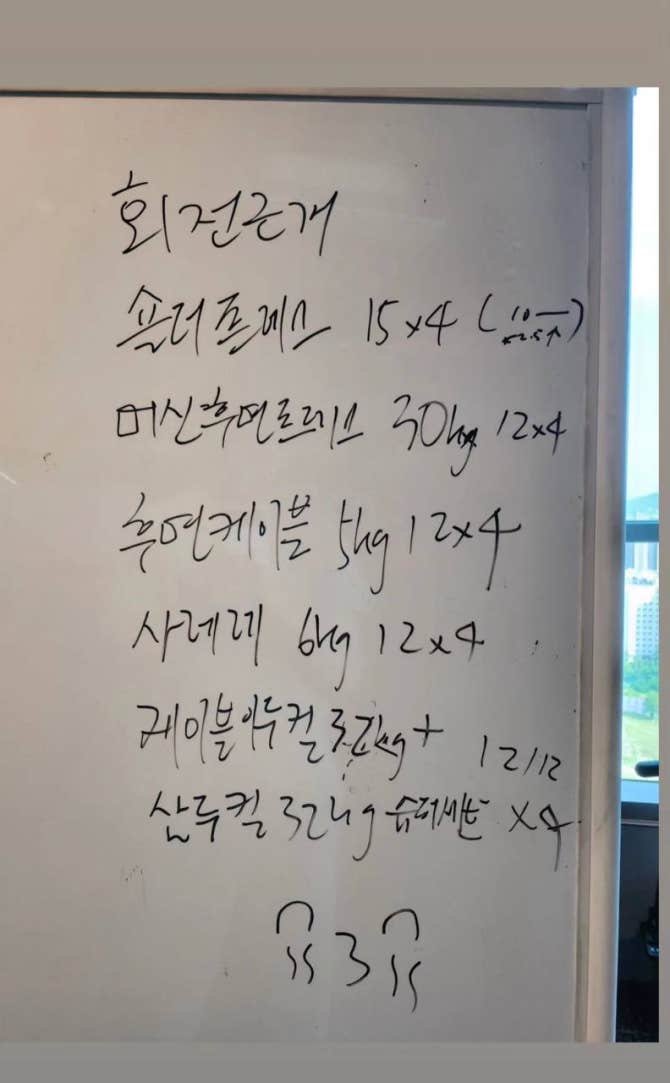 회전근개
숄더프레스 15x4 (10
머신후면프레스 30kg 12x4
후면케이블 5kg 12x4
사레레 6kg 12x4
케이블이두컬 32kg + 12/12
삼두컬 32kg 슈퍼세트 x4
3